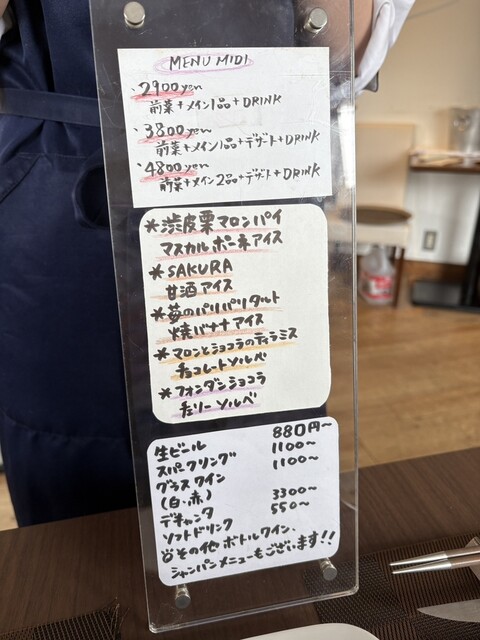 MENU MIDI
・2900yen
前菜+メイン1品+DRINK
・3800yen
前菜+メイン1品+デザート+DRINK
・4800yen
前菜+メイン2品+デザート+DRINK
*渋皮栗マロンパイ
マスカルポーネアイス
*SAKURA
甘酒アイス
*苺のパリパリタルト
焼バナナアイス
*マロンとショコラのティラミス
チョコレートソルベ
*フォンダンショコラ
チェリーソルベ
生ビール 880円〜
スパークリング 1100〜
グラスワイン 1100〜
(白・赤)
デキャンタ 3300〜
ソフトドリンク 550〜
その他ボトルワイン、
シャンパンメニューもございます!!